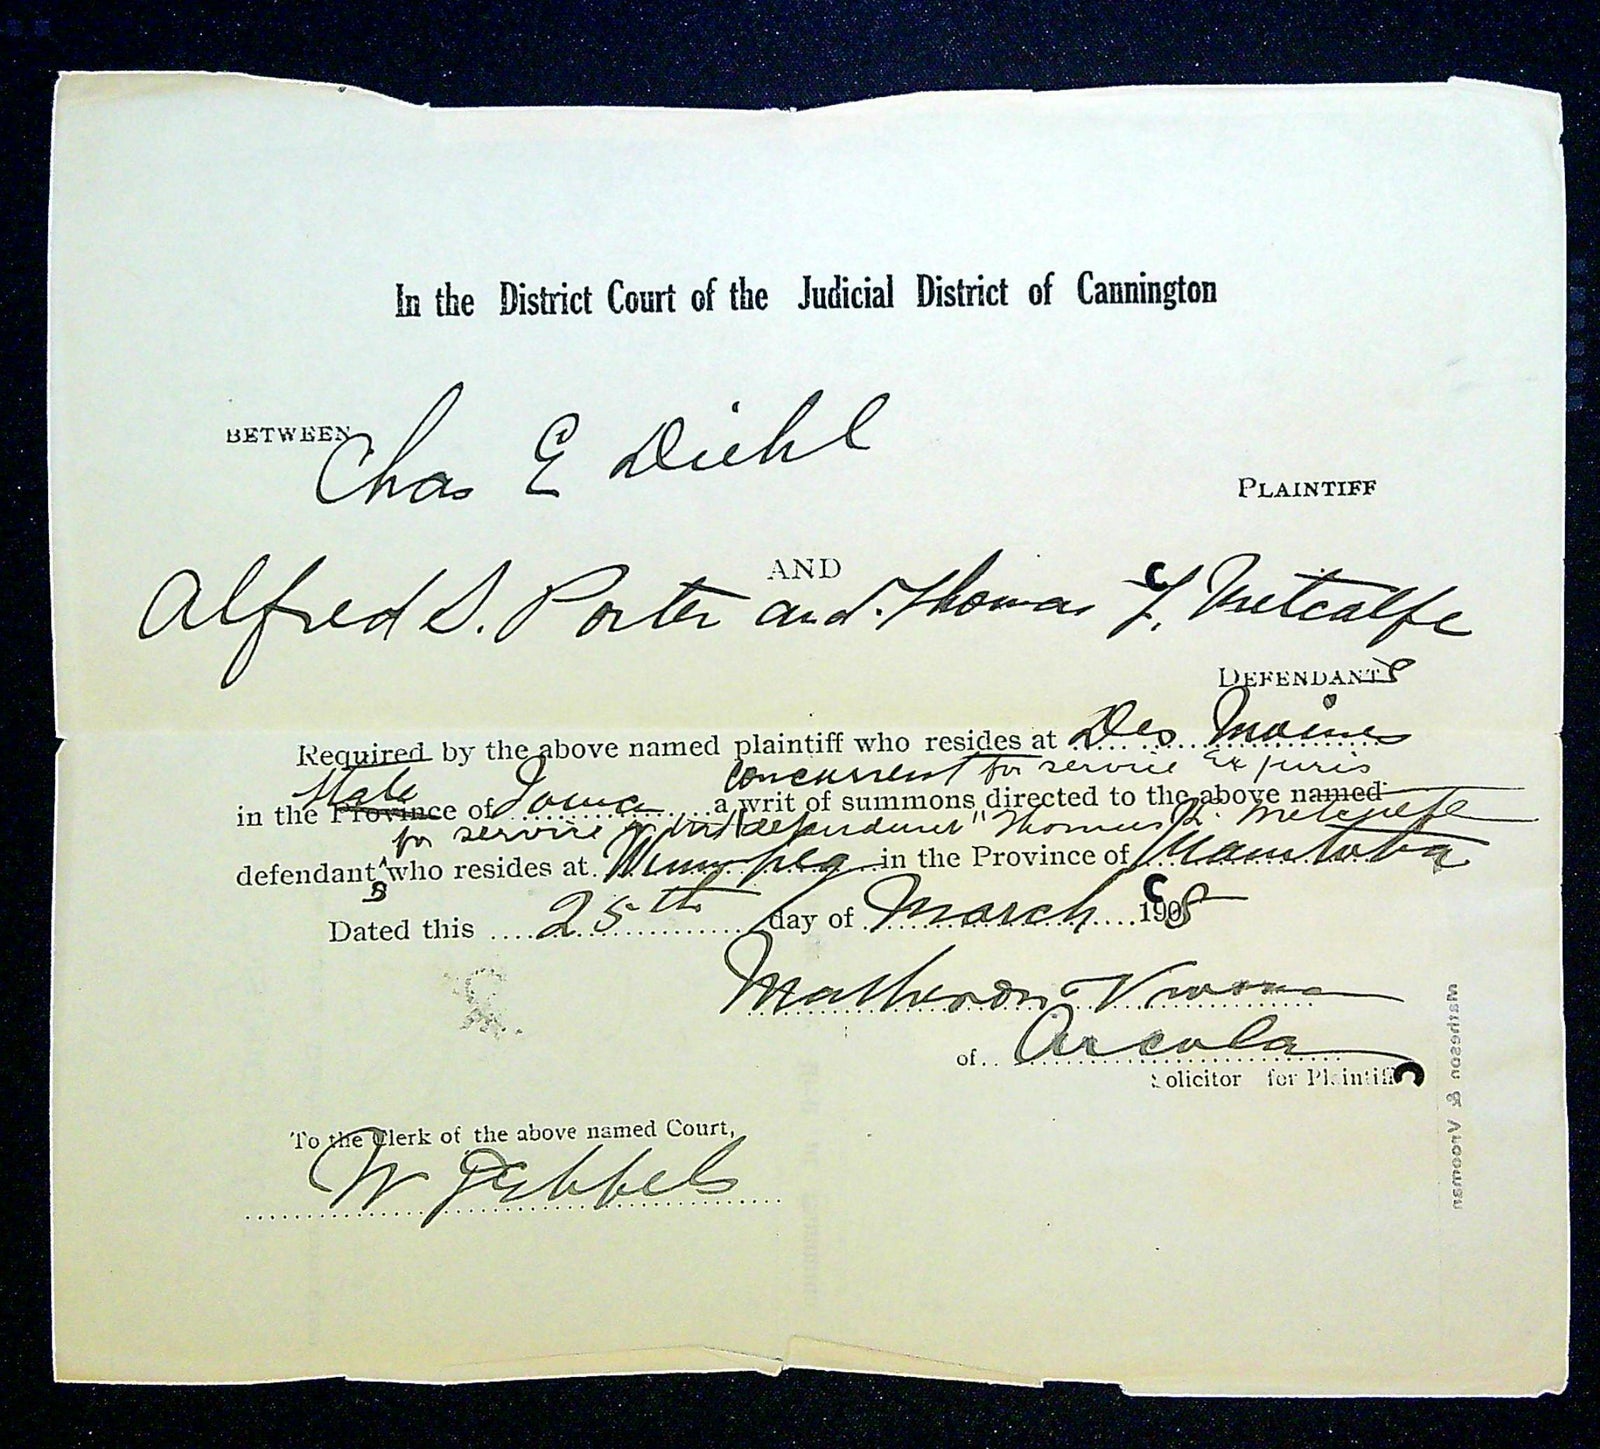 In the District Court of the Judicial District of Cannington
BETWEEN
Chas E Diehl
PLAINTIFF
AND
Alfred S. Porter and Thomas F. Metcalfe
DEFENDANTS
Required by the above named plaintiff who resides at Des Moines
concurrent for service Ex juris
in the State Province of Iowa a writ of summons directed to the above named
for service on defendant Thomas Metcalfe
defendants who resides at Winnipeg in the Province of Manitoba
Dated this 25th day of March 1908
Matheson & Vrooman
of Arcola
Solicitor for Plaintiff
To the Clerk of the above named Court,
W
Matheson & Vrooman